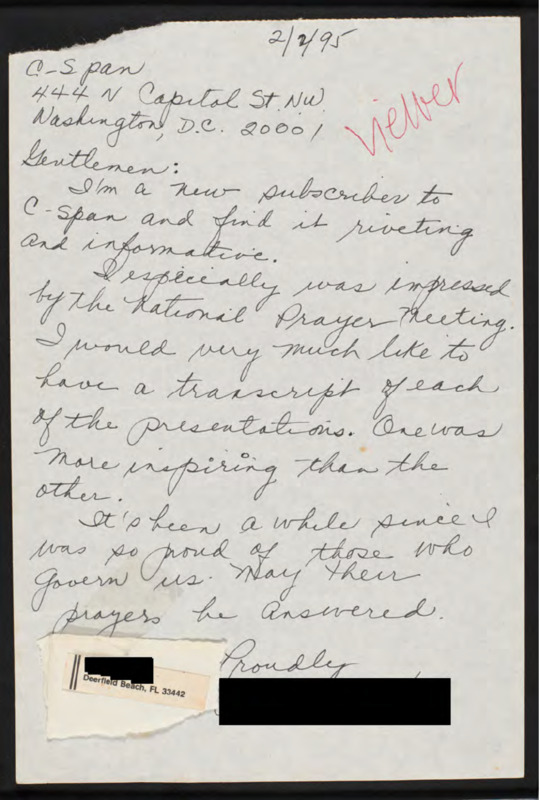 2/2/95
C-Span
444 N Capitol St. NW
Washington, D.C. 20001
viewer
Gentlemen:
I'm a new subscriber to
C-span and find it riveting
and informative.
I especially was impressed
by the National Prayer Meeting.
I would very much like to
have a transcript of each
of the presentations. One was
more inspiring than the
other.
It's been a while since I
was so proud of those who
govern us. May their
prayers be answered.
Proudly
Deerfield Beach, FL 33442